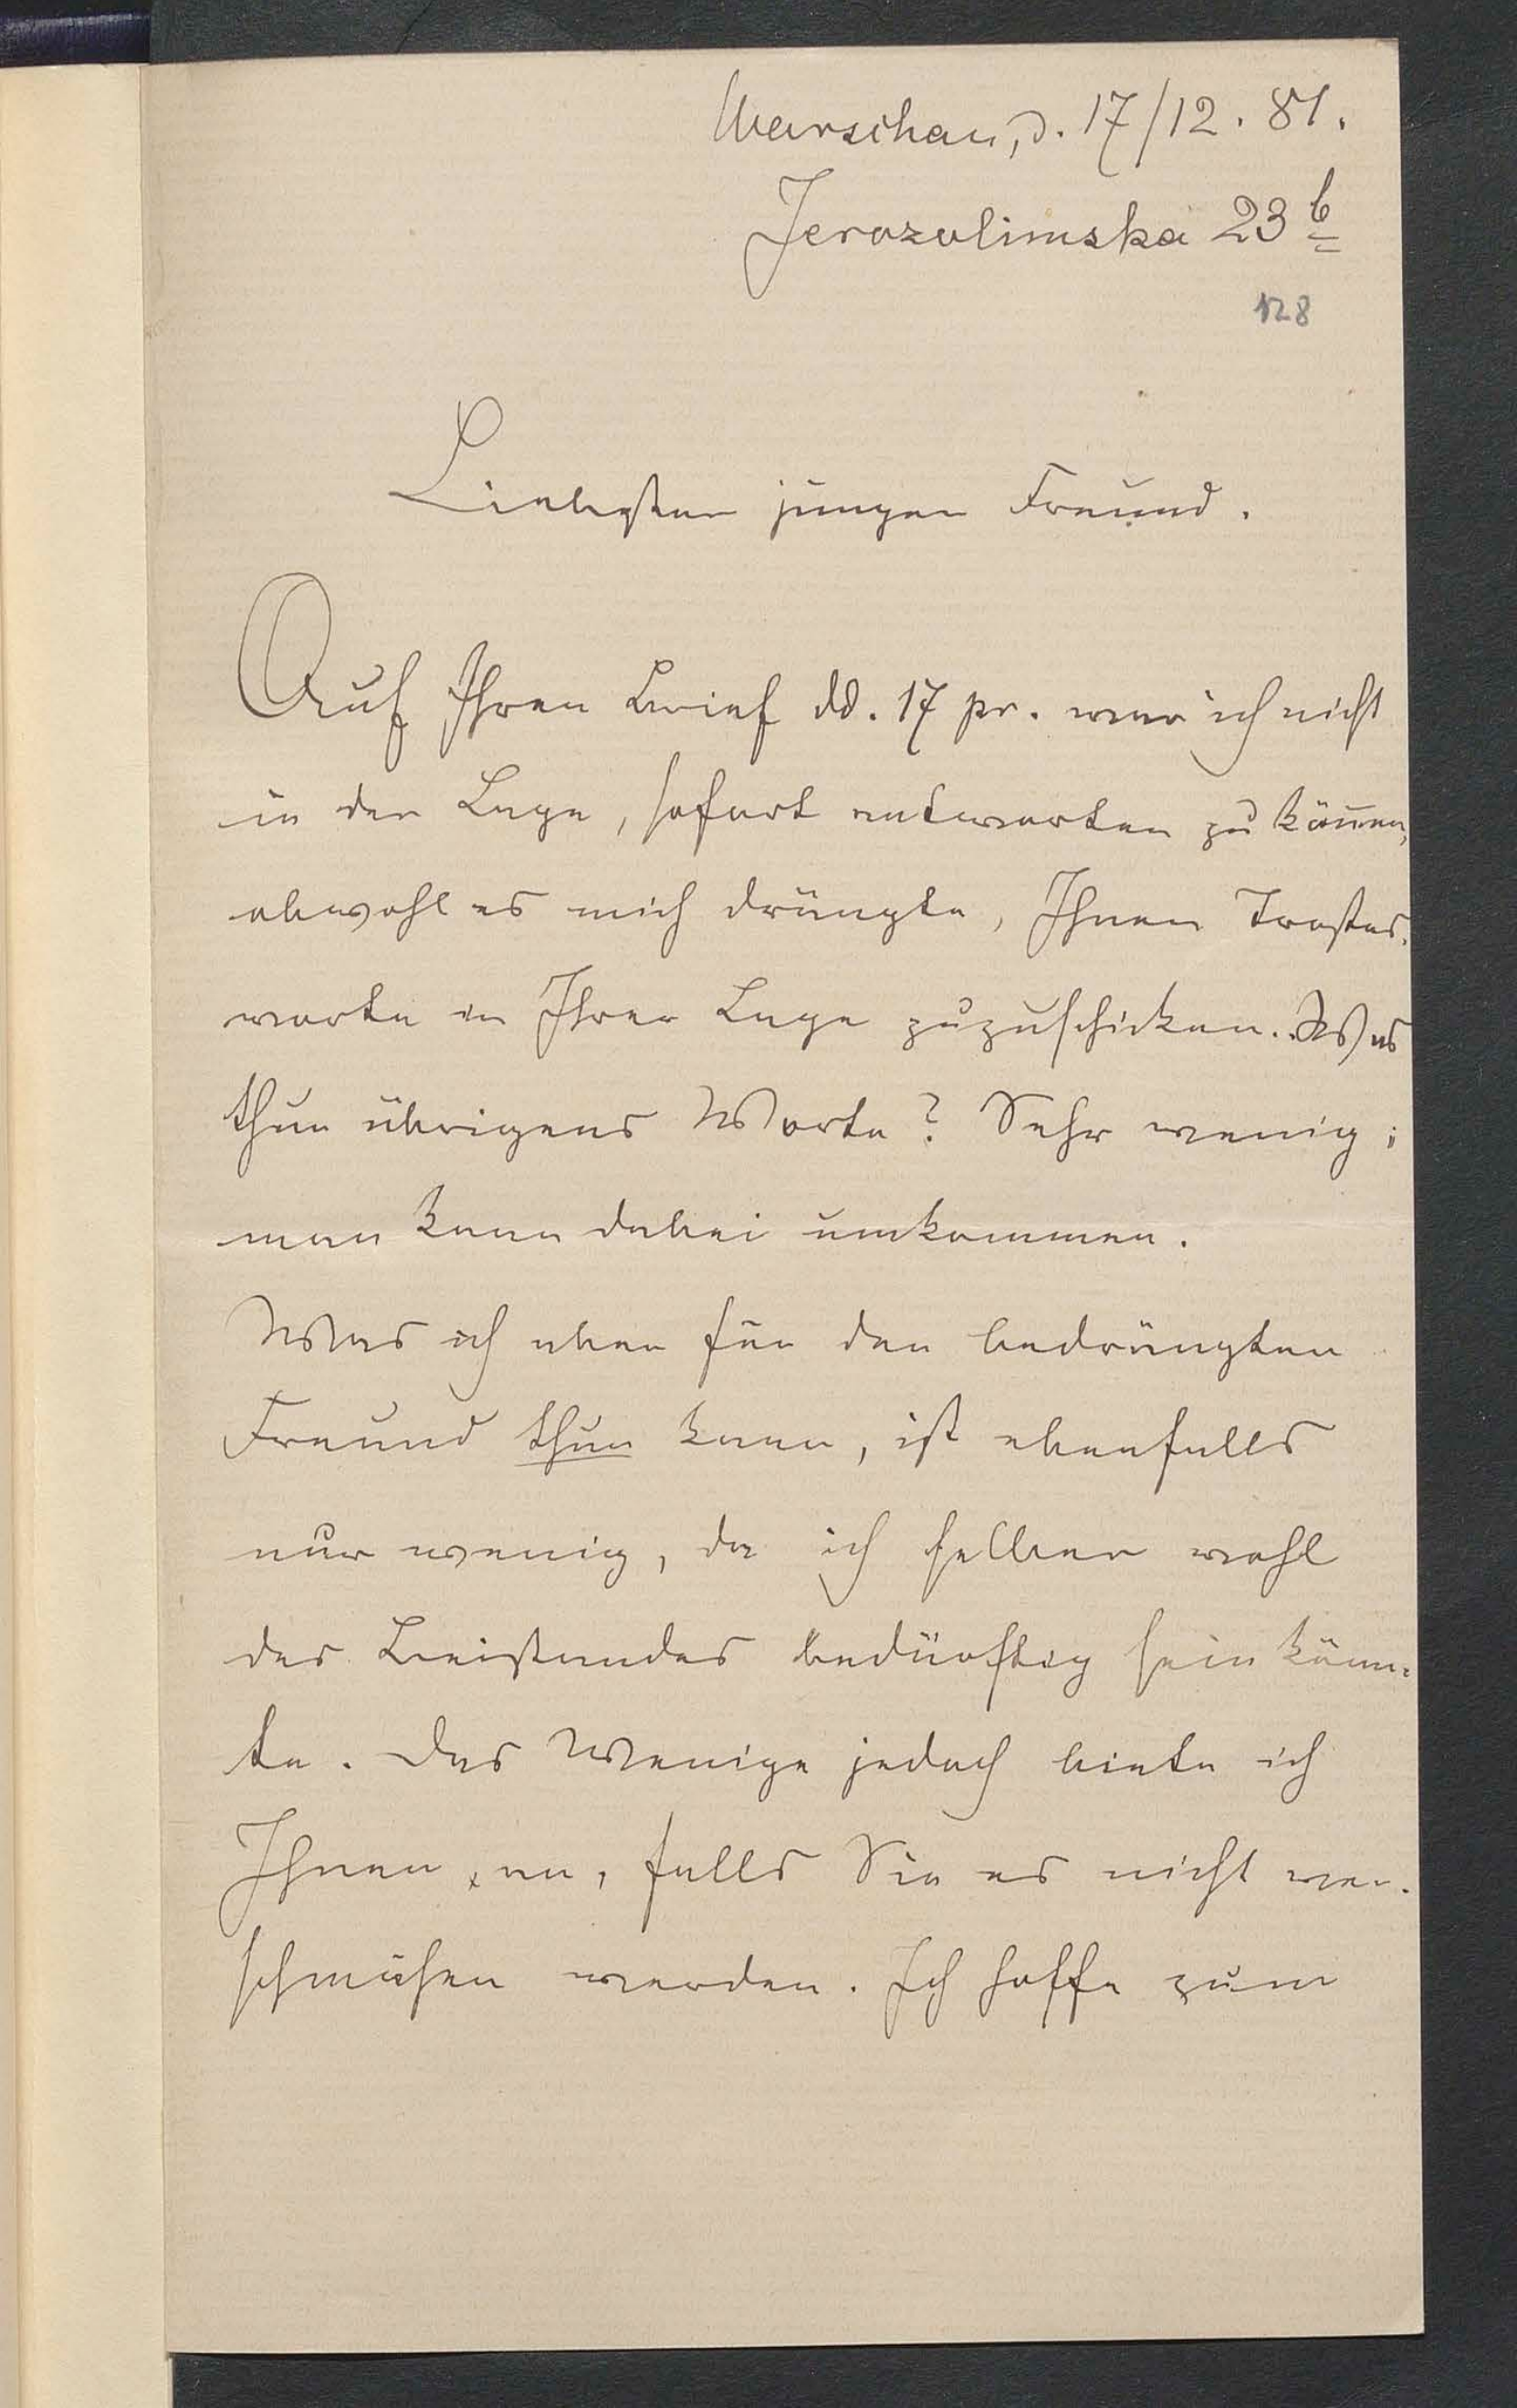 Warschau, d. 17/12. 81.
Jerozolimska 23 b
128
Liebster junger Freund.
Auf Ihren Brief dd. 17 pr. war ich nicht
in der Lage, sofort antworten zu können,
obwohl es mich drängte, Ihnen Trostes-
worte in Ihrer Lage zuzuschicken. Was
thun übrigens Worte? Sehr wenig;
man kann dabei umkommen.
Was ich aber für den bedrängten
Freund thun kann, ist ebenfalls
nur wenig, da ich selber wohl
des Beistandes bedürftig sein könn-
te. Das Wenige jedoch biete ich
Ihnen an, falls Sie es nicht ver-
schmähen werden. Ich hoffe zum